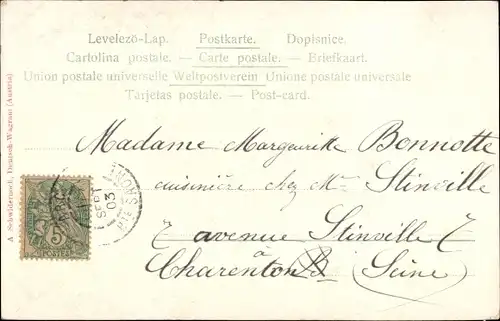 Levelező-Lap. Postkarte. Dopisnice.
Cartolina postale. — Carte postale. — Briefkaart.
Union postale universelle Weltpostverein Unione postale universale
Tarjetas postale. — Post-card.
A. Schwidernoch, Deutsch-Wagram (Austria)
Madame Margeurite Bonnotte
cuisinière chez Mr Stinville
7 avenue Stinville 7
à
Charenton (Seine)
SEPT
03
5
POSTES